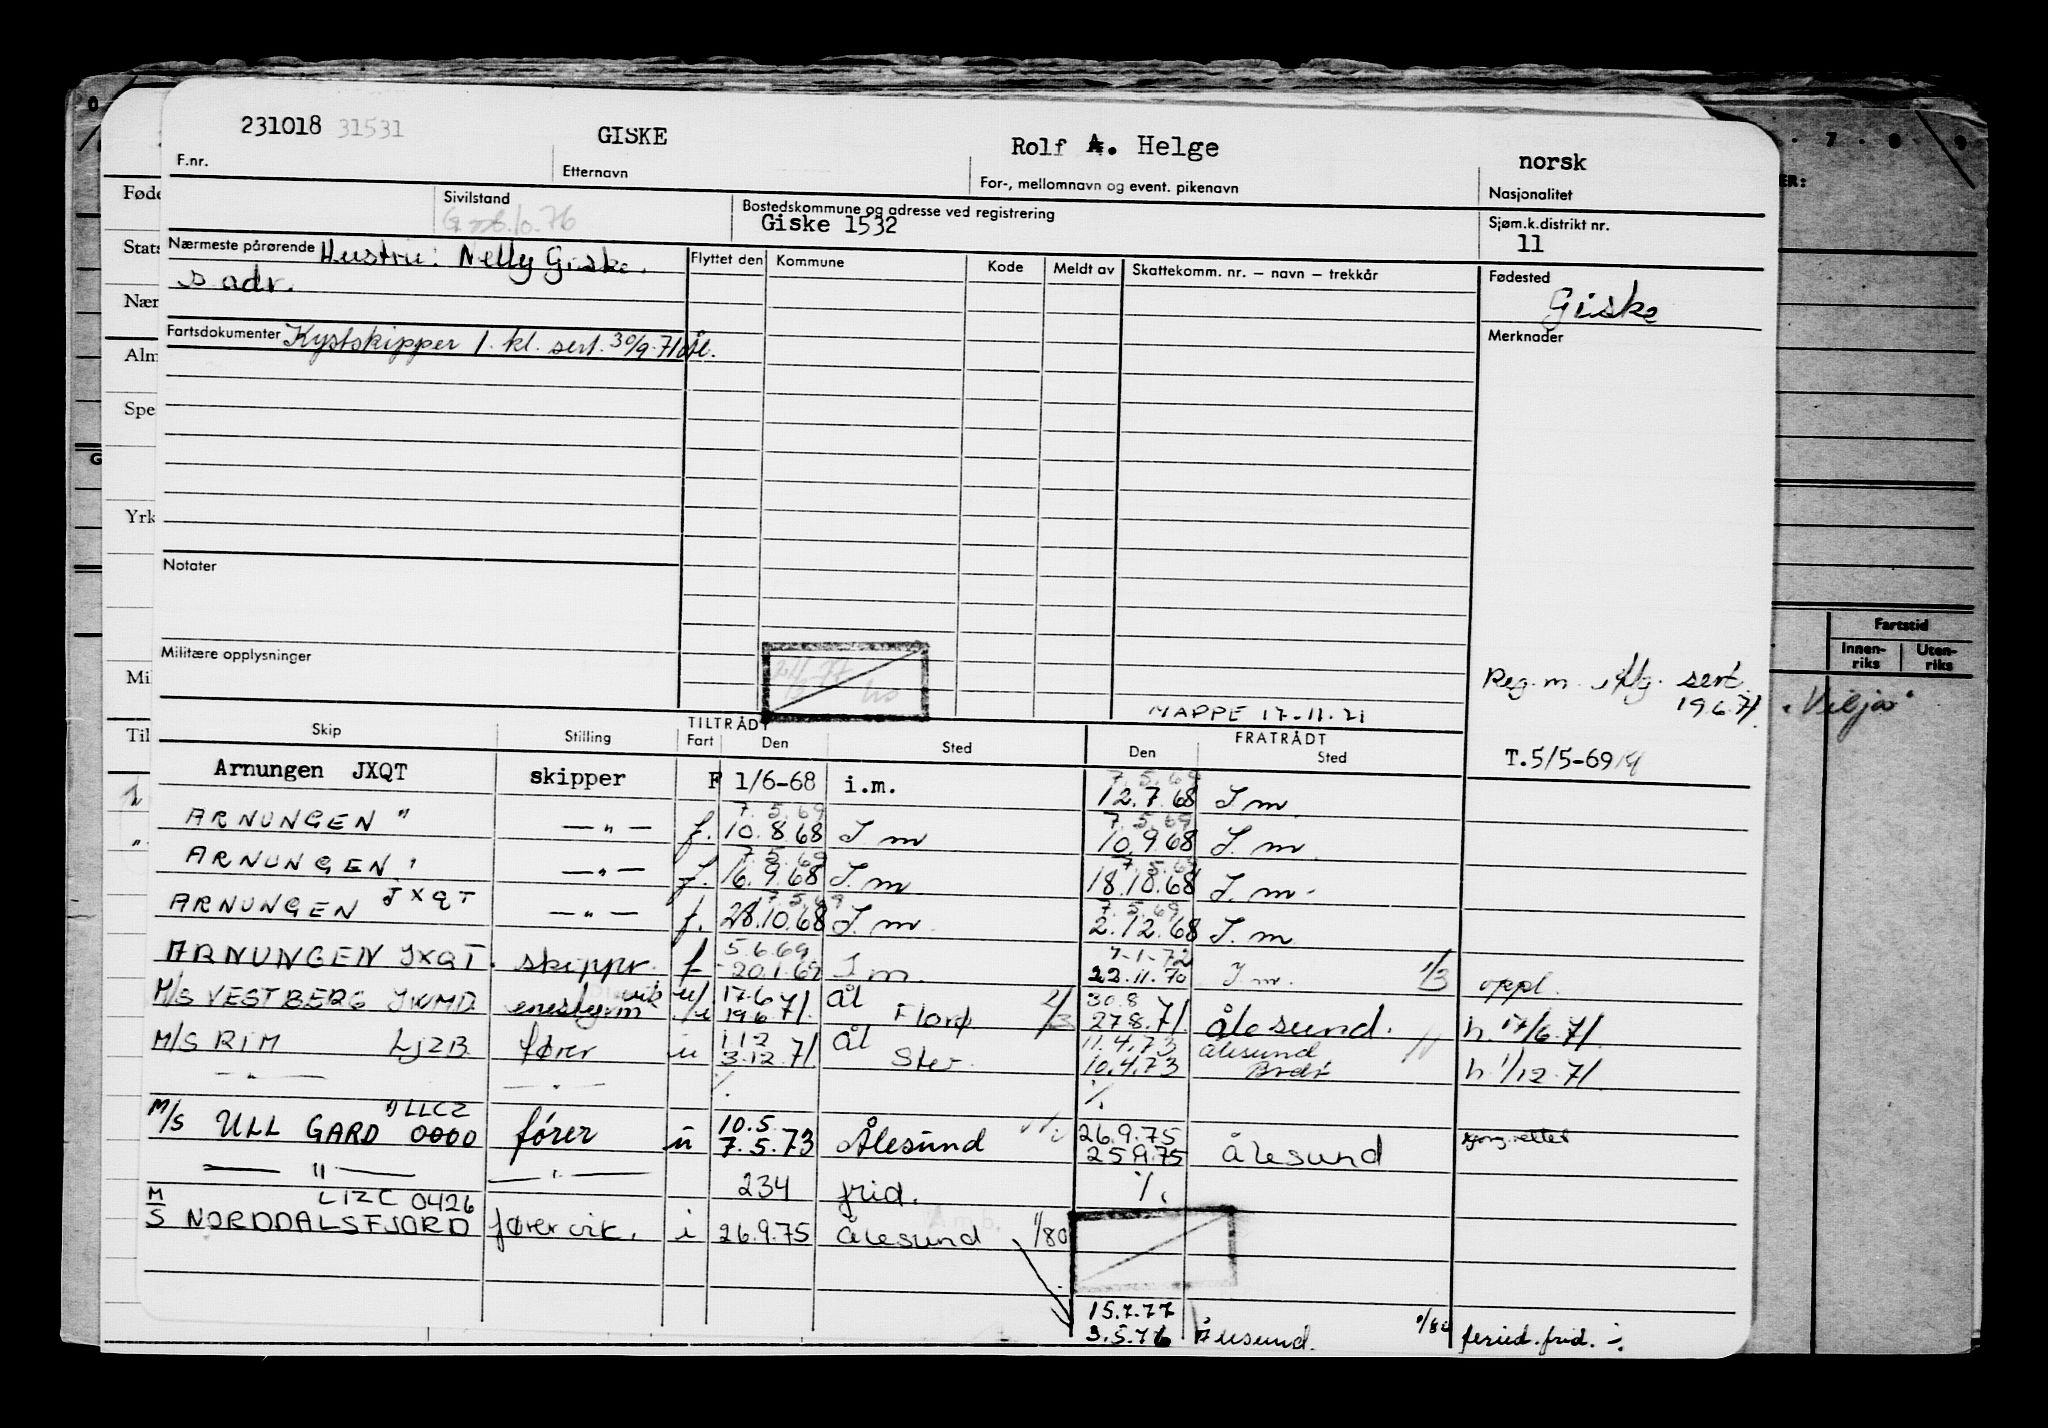 231018 31531 GISKE Rolf A. Helge norsk
F.nr. Etternavn For-, mellomnavn og event. pikenavn Nasjonalitet
Sivilstand Bostedskommune og adresse ved registrering Sjøm.k.distrikt nr.
Giske 1532 11
Nærmeste pårørende Hustru: Nelly Giske. Flyttet den Kommune Kode Meldt av Skattekomm. nr. – navn – trekkår Fødested
s. adr. Giske
Fartsdokumenter Kystskipper 1. kl. sert. 30/9-71 Ål. Merknader
Notater
Militære opplysninger
Reg. m. sert.
19.6.71
MAPPE 17-11-71
TILTRÅDT FRATRÅDT
Skip Stilling Fart Den Sted Den Sted
T.5/5-69
7.5.69
Arnungen JXQT skipper F 1/6-68 i.m. 12.7.68 I.m.
7.5.69 7.5.69
ARNUNGEN " —"— f. 10.8.68 I.m 10.9.68 I.m.
7.5.69 7.5.69
ARNUNGEN " —"— f. 16.9.68 I.m 18.10.68 I.m.
7.5.69 7.5.69
ARNUNGEN JXQT —"— f. 28.10.68 I.m. 2.12.68 I.m
5.6.69 7-1-72
ARNUNGEN JXQT. skippr. f 20.1.69 I.m. 22.11.70 I.m. 1/3 oppl.
17.6 Ål 30.8
M/S VESTBERG enestyrm vik 19.6.71. Florø 27.8.71. Ålesund. h. 17/6.71.
1.12 Ål 11.4.73 Ålesund
M/S RIM LJZB fører u 3.12.71. 10.4.73 h. 1/12.71.
—"— —"— %. %.
LLCZ 10.5. 26.9.75
M/S ULLGARD 0000 fører u 7.5.73 Ålesund 25.9.75 Ålesund
—"— —"— 234 frid. %.
LIZC 0426
M/S NORDDALSFJORD fører vik. i 26.9.75 Ålesund 1/80
15.7.77
3.5.76 Ålesund. feried. frid.
Føde
Stats
Nær
Alm
Spe
G
Yrk
Mil
Til
7 8 9
ER:
Fartstid
Innen-
riks
Uten-
riks
"Vilja"